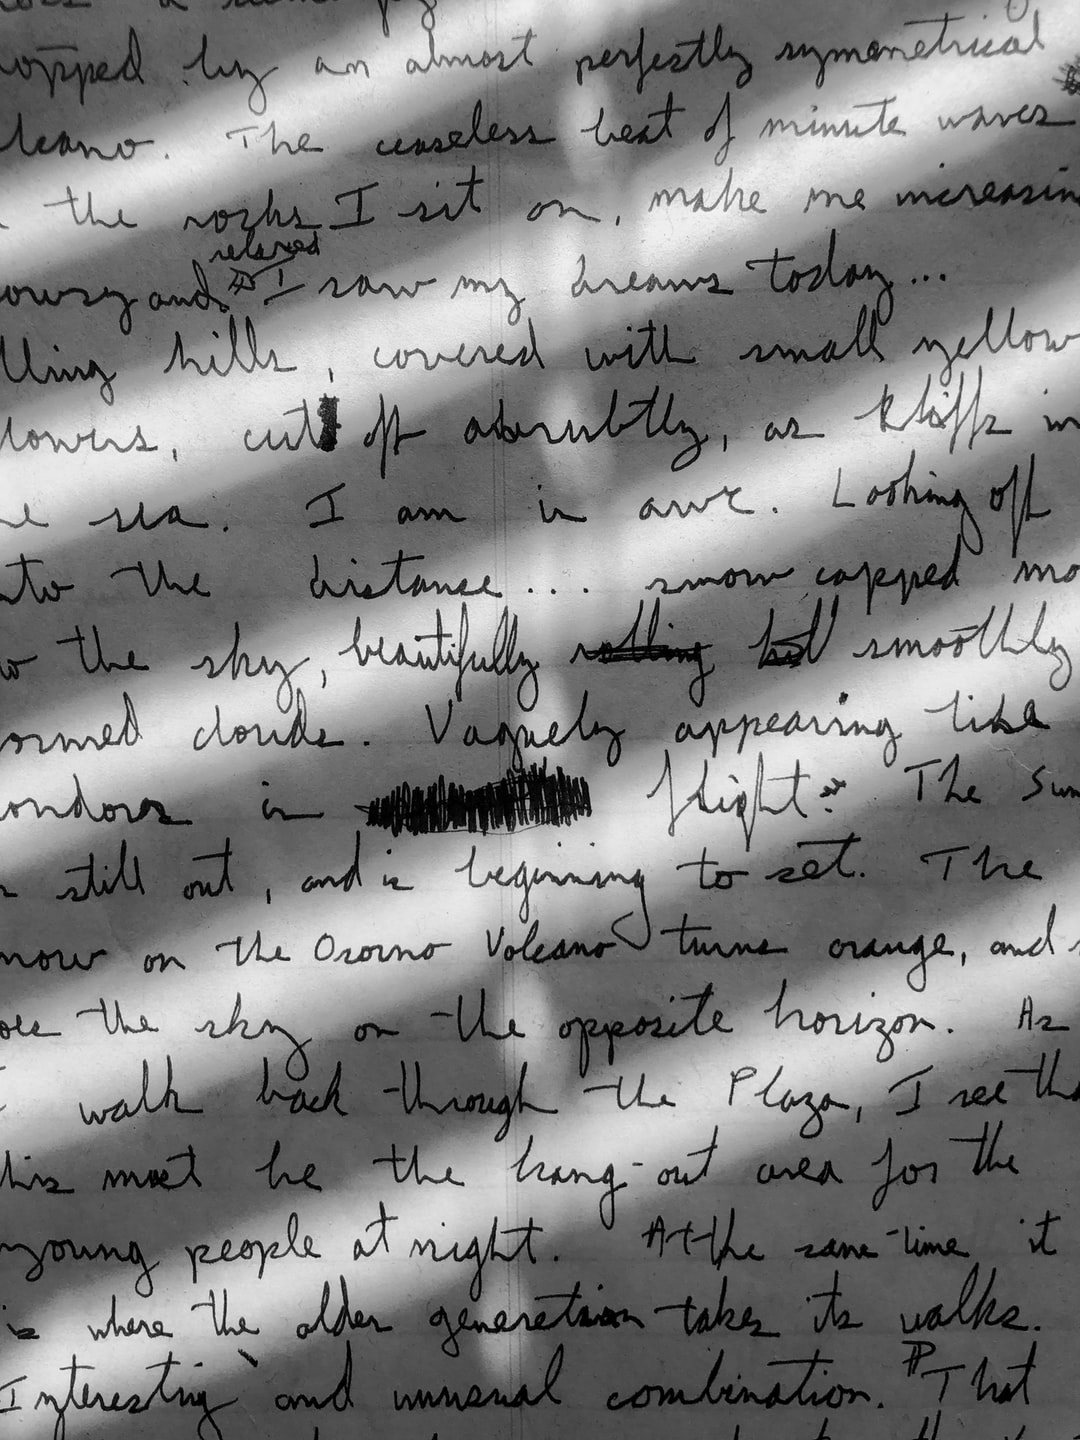 topped by an almost perfectly symmetrical
lcano. The ceaseless beat of minute waves
the rocks I sit on, make me increasin
relaxed
owsy and I saw my dreams today...
lling hills, covered with small yellow
lowers, cut off abrubtly, as kliffs in
e sea. I am in awe. Looking off
nto the distance... snow capped mo
w the sky, beautifully rolling smoothly
ormed clouds. Vaguely appearing like
condors in flight. The Sun
still out, and is beginning to set. The
now on the Osorno Volcano turns orange, and
oes the sky on the opposite horizon. As
I walk back through the Plaza, I see tha
this must be the hang-out area for the
young people at night. At the same time it
is where the older generation takes its walks.
Interesting and unusual combination. That